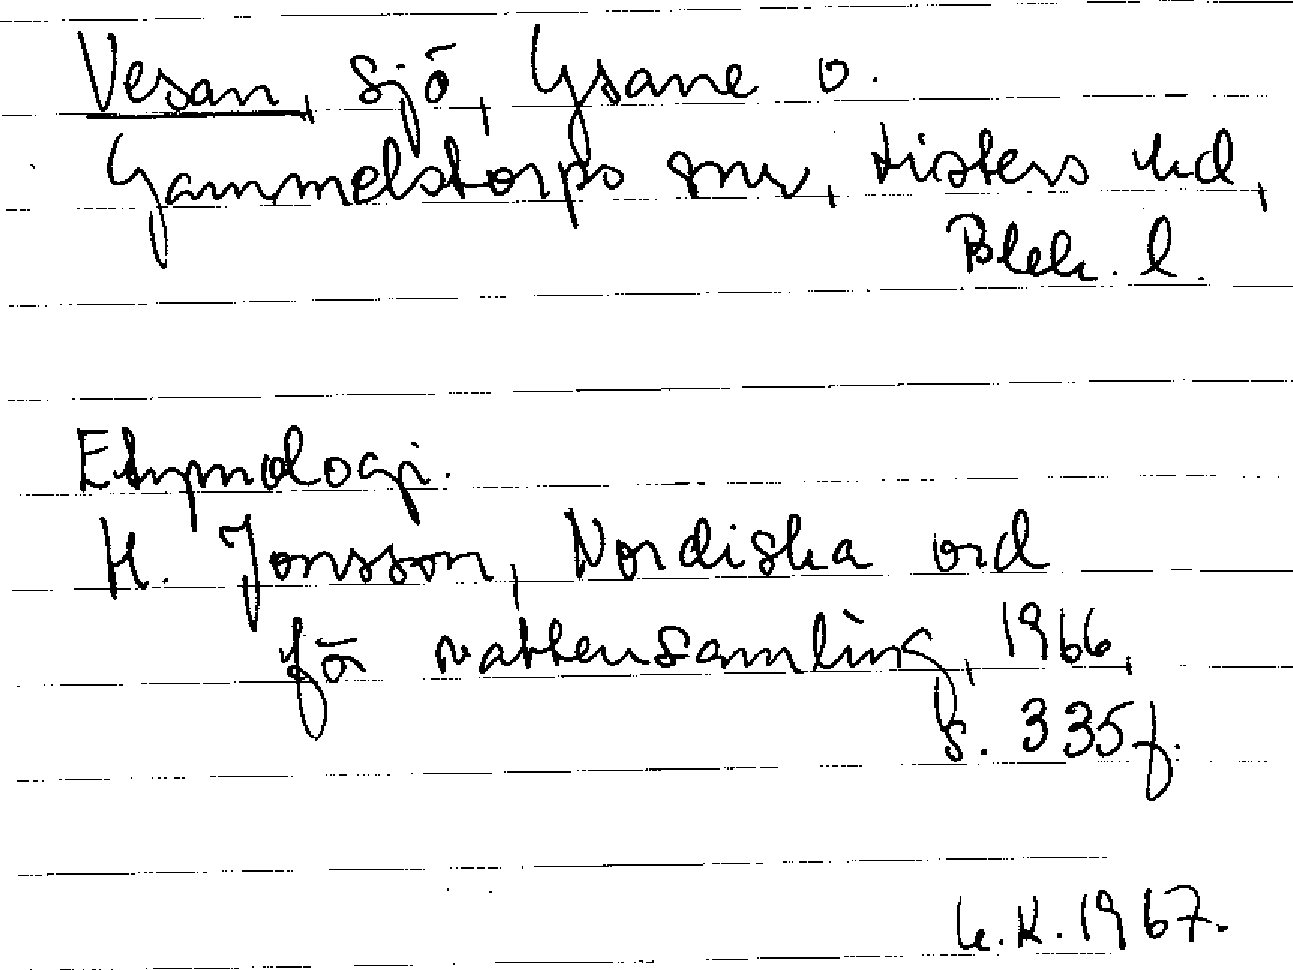 Vesan, sjö, Ysane o.
Gammelstorps snr, Listers hd,
Blek. l.
Etymologi.
H. Jonsson, Nordiska ord
för vattensamling, 1966,
s. 335 f.
K. 1967.